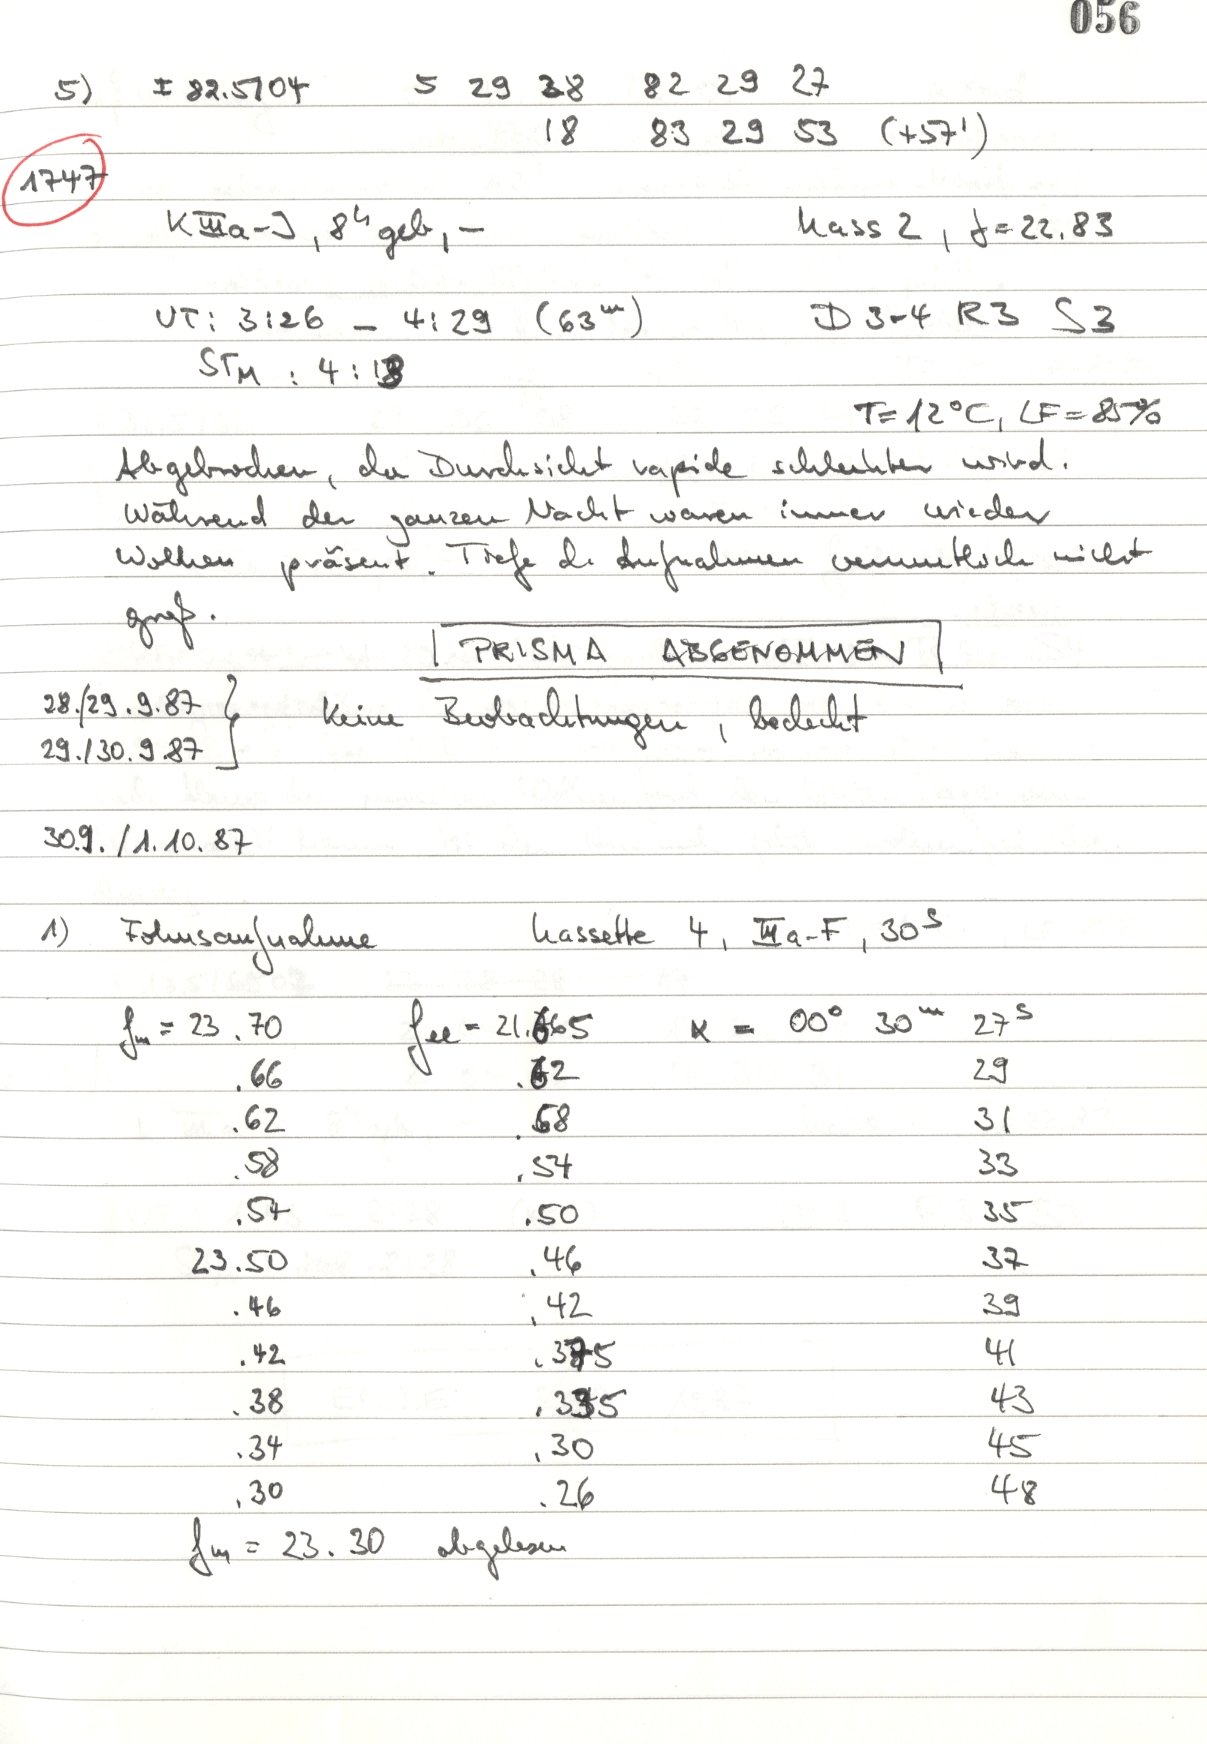 056
5) I 82.5704 5 29 38 82 29 27
18 83 29 53 (+57')
1747
KIIIa-J, 8h geb, - Kass 2, f=22.83
UT: 3:26 - 4:29 (63m) D 3-4 R3 S3
STM : 4:13
T=12°C, LF=85%
Abgebrochen, da Durchsicht rapide schlechter wird.
Während der ganzen Nacht waren immer wieder
Wolken präsent. Tiefe d. Aufnahmen vermutlich nicht
groß.
PRISMA ABGENOMMEN
28./29.9.87
29./30.9.87 } Keine Beobachtungen, bedeckt
30.9./1.10.87
1) Fokusaufnahme Kassette 4, IIIa-F, 30s
fm = 23.70 fee = 21.665 α = 00° 30m 27s
.66 .62 29
.62 .58 31
.58 .54 33
.54 .50 35
23.50 .46 37
.46 .42 39
.42 .375 41
.38 .335 43
.34 .30 45
.30 .26 48
fm = 23.30 abgelesen